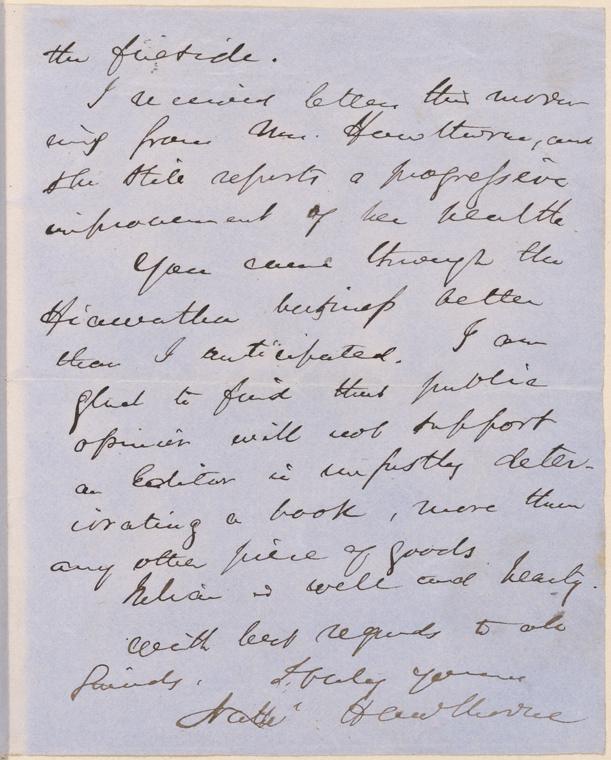 the fireside.
I received letters this mor-
ning from Mrs. Hawthorne, and
she still reports a progressive
improvement of her health.
You came through the
Hiawatha business better
than I anticipated. I am
glad to find that public
opinion will not support
an Editor in unjustly deter-
iorating a book, more than
any other piece of goods
Julian is well and hearty.
With best regards to all
friends. Truly yours
Nathl Hawthorne